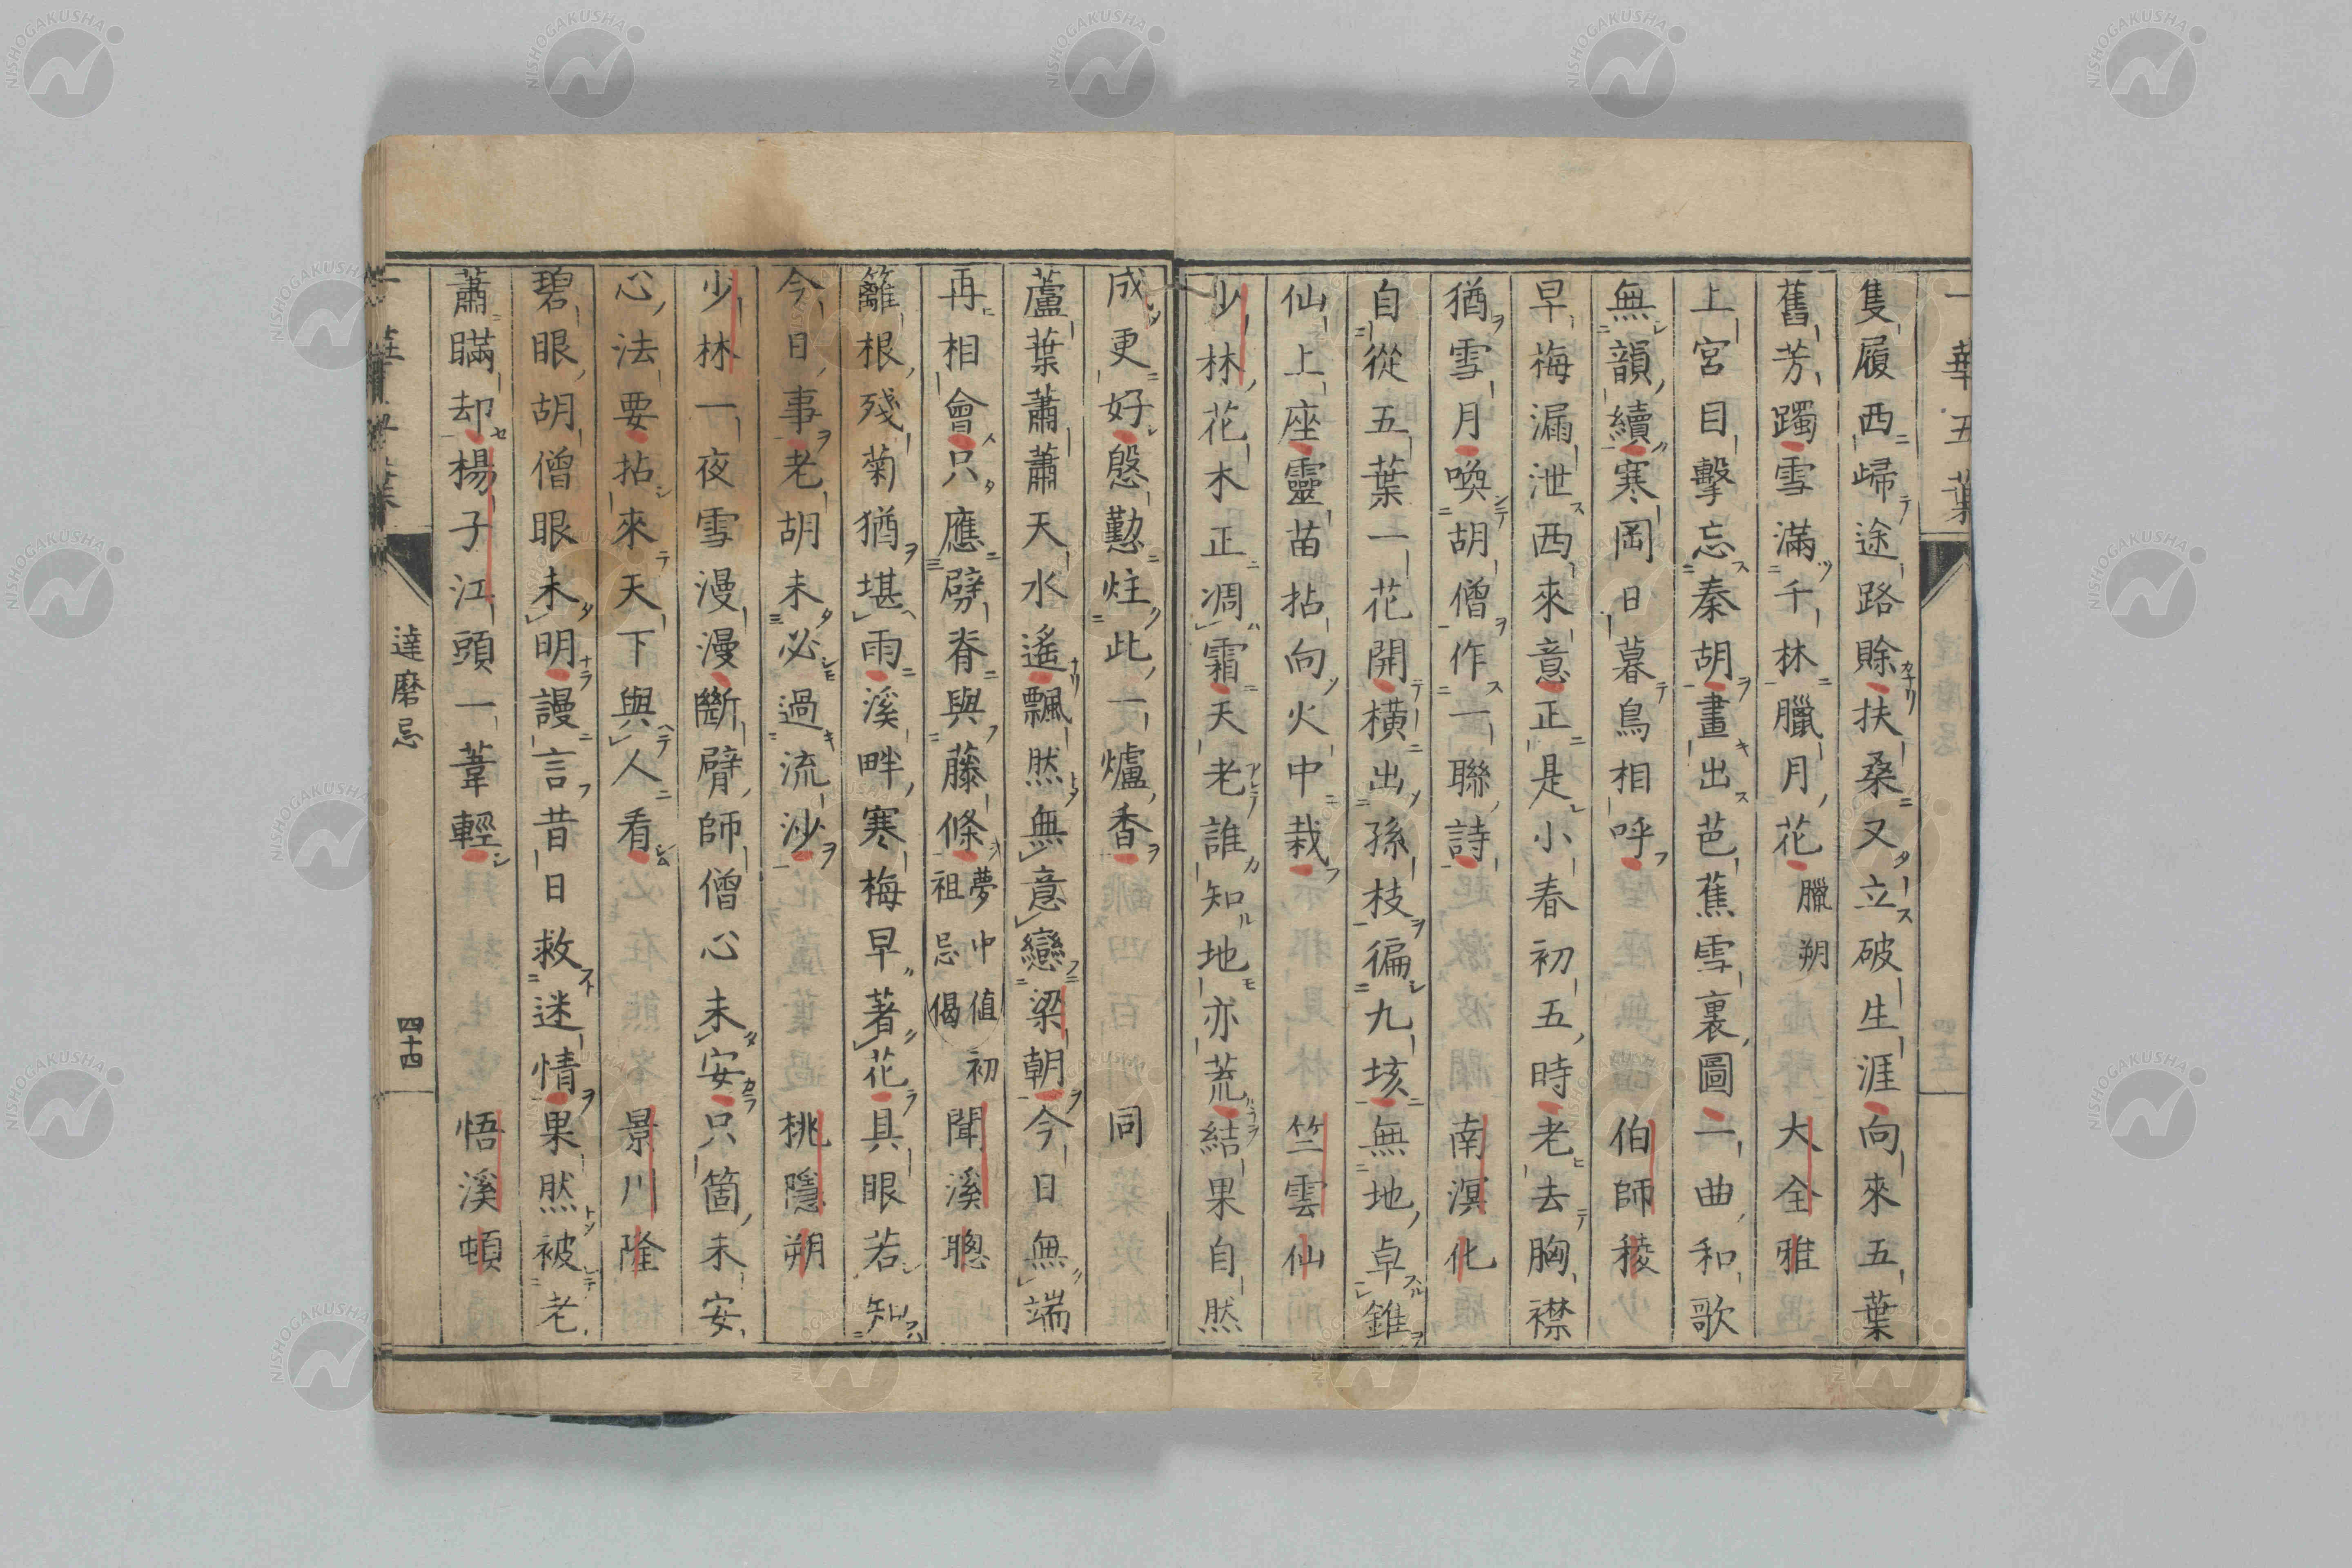 一華五葉
隻履西歸途路賒扶桑又立破生涯向來五葉
舊芳躅雪滿千林臘月花 臘朔 大全雅
上宮目擊忘秦胡畫出芭蕉雪裏圖二曲和歌
無韻續寒岡日暮鳥相呼 伯師稜
早梅漏泄西來意正是小春初五時老去胸襟
猶雪月喚胡僧作一聯詩 南溟化
自從五葉一花開橫出孫枝徧九垓無地卓錐
仙上座靈苗拈向火中栽 竺雲仙
少林花木正凋霜天老誰知地亦荒結果自然
成更好慇懃炷此一爐香 同
蘆葉蕭蕭天水遙飄然無意戀梁朝今日無端
再相會只應劈脊與藤條 夢中值初祖忌偈 聞溪聰
籬根殘菊猶堪雨溪畔寒梅早著花具眼若知
今日事老胡未必過流沙 桃隱朔
少林一夜雪漫漫斷臂師僧心未安只箇未安
心法要拈來天下與人看 景川隆
碧眼胡僧眼未明謾言昔日救迷情果然被老
蕭瞞却楊子江頭一葦輕 悟溪頓
達磨忌
四十四